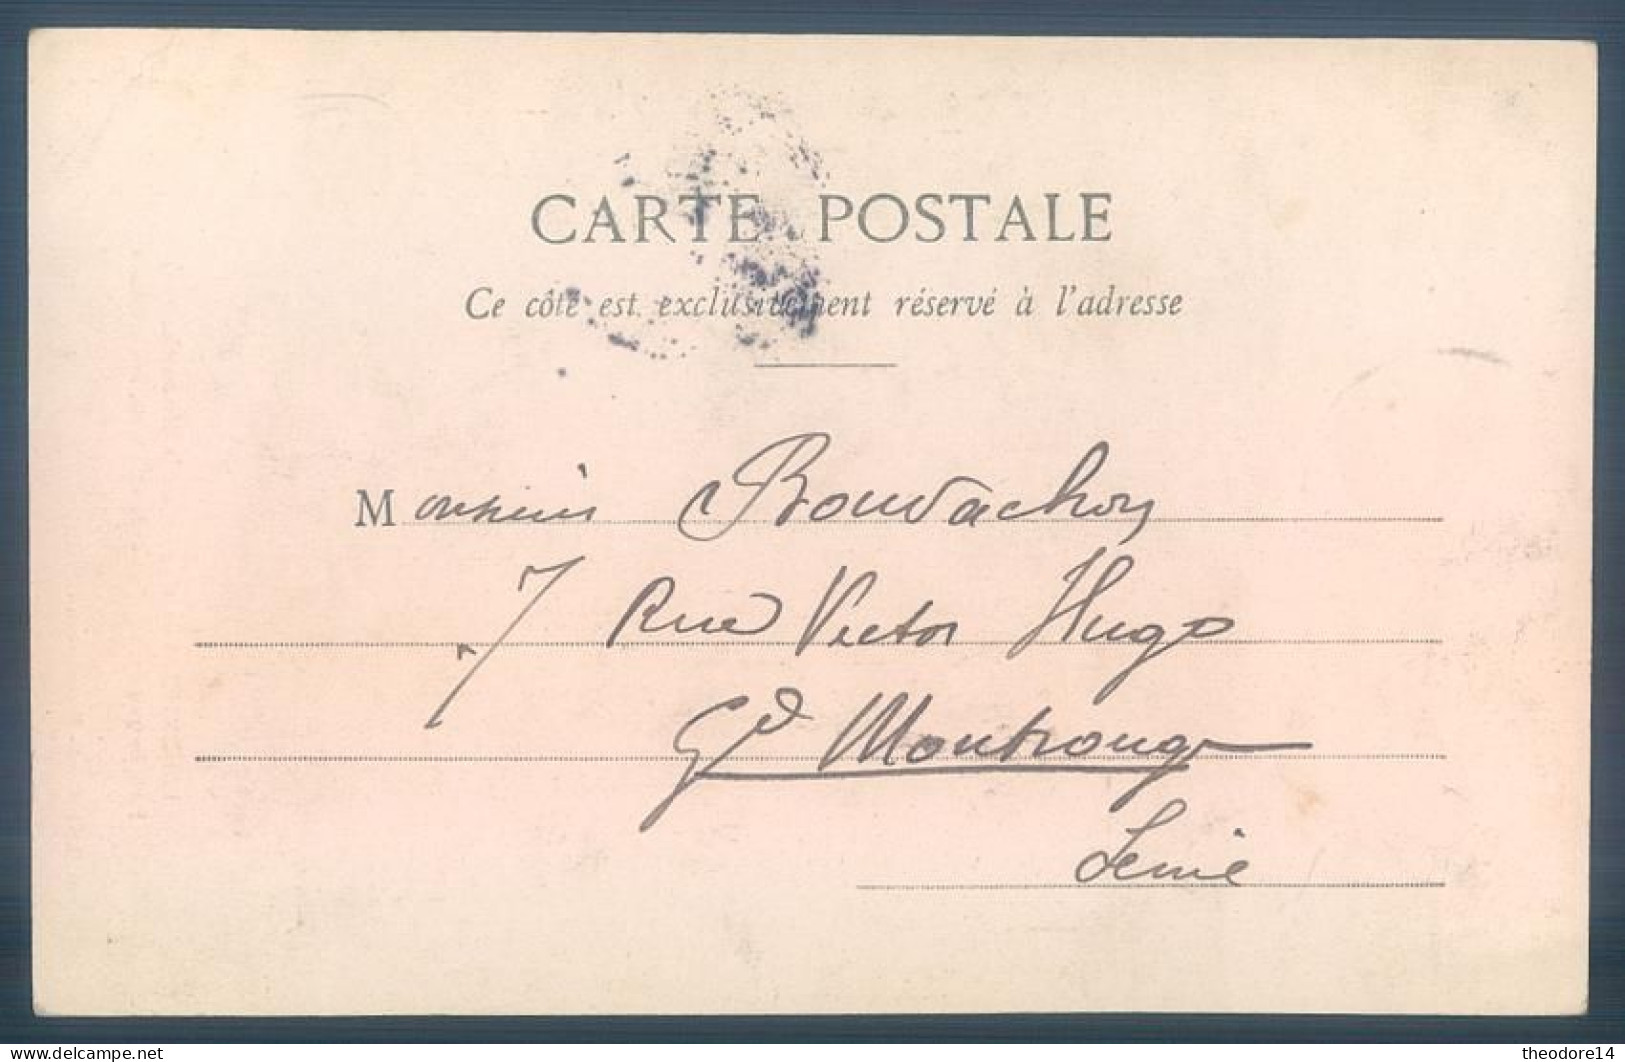 CARTE POSTALE
Ce côté est exclusivement réservé à l'adresse
Monsieur
7 Rue Victor Hugo
Gd Montrouge
Seine
delcampe.net
theodore14